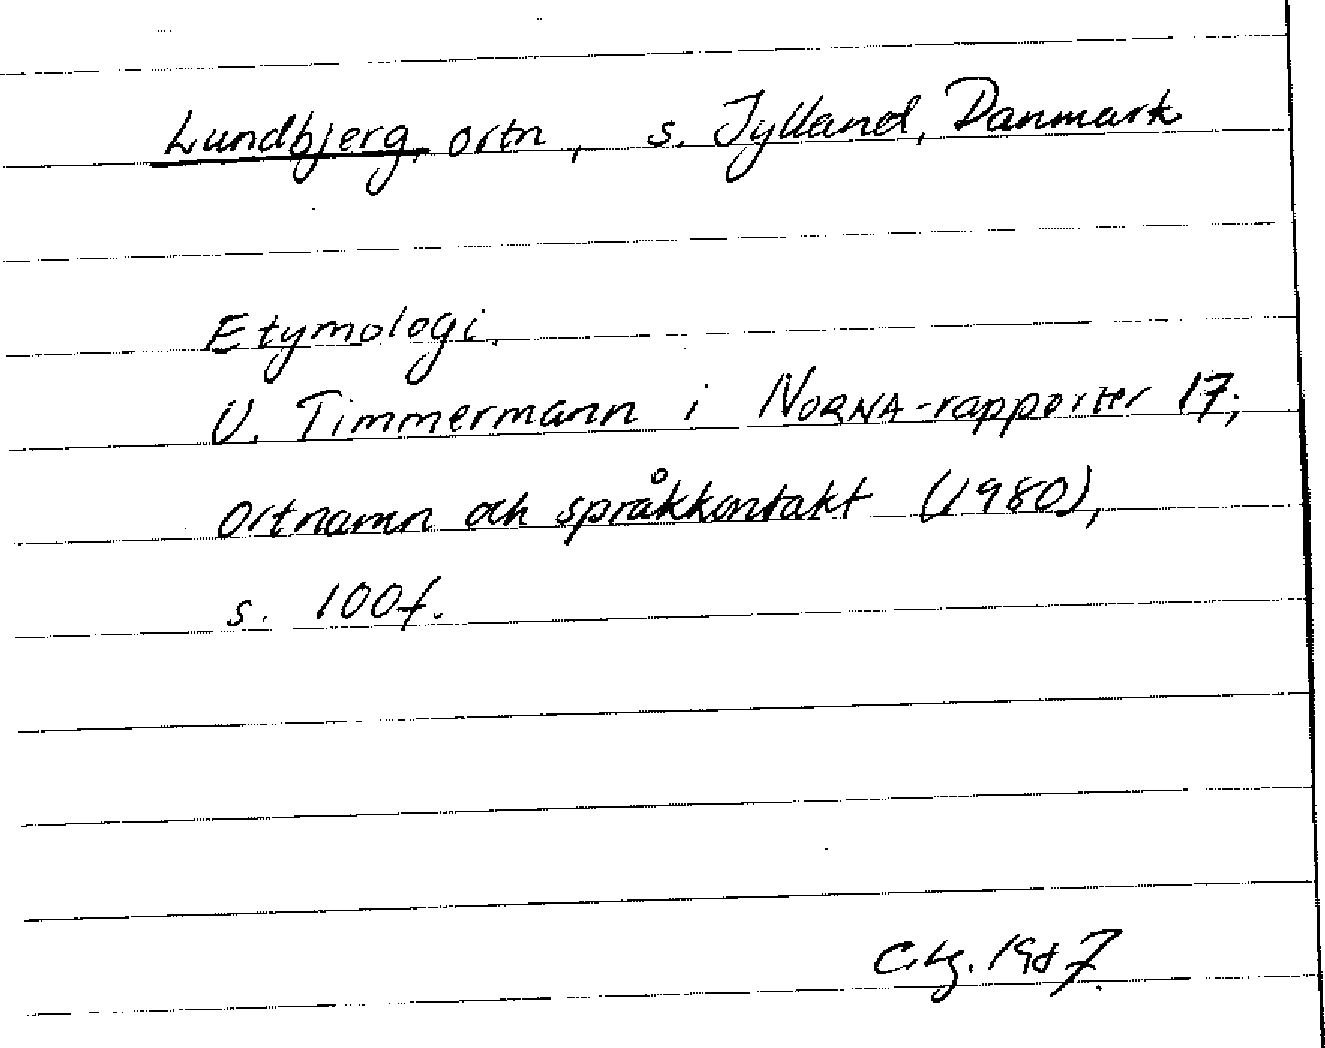 Lundbjerg, ortn, s. Jylland, Danmark
Etymologi.
U. Timmermann i NORNA-rapporter 17;
Ortnamn och språkkontakt (1980),
s. 100f.
1987.